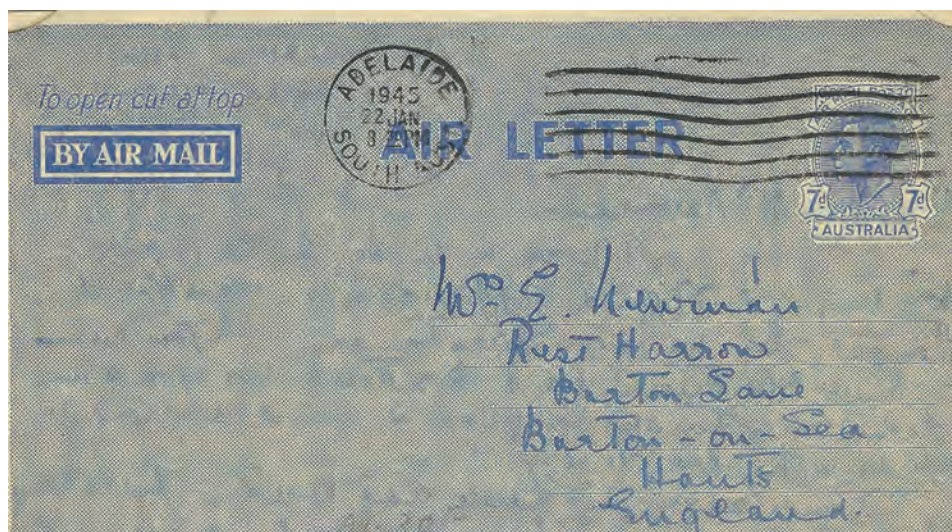 To open cut at top
BY AIR MAIL
ADELAIDE
1945
22 JAN
SOUTH AUST
AIR LETTER
7d 7d
AUSTRALIA
Mrs E. Newman
Rest Harrow
Barton Lane
Barton-on-Sea
Hants
England.